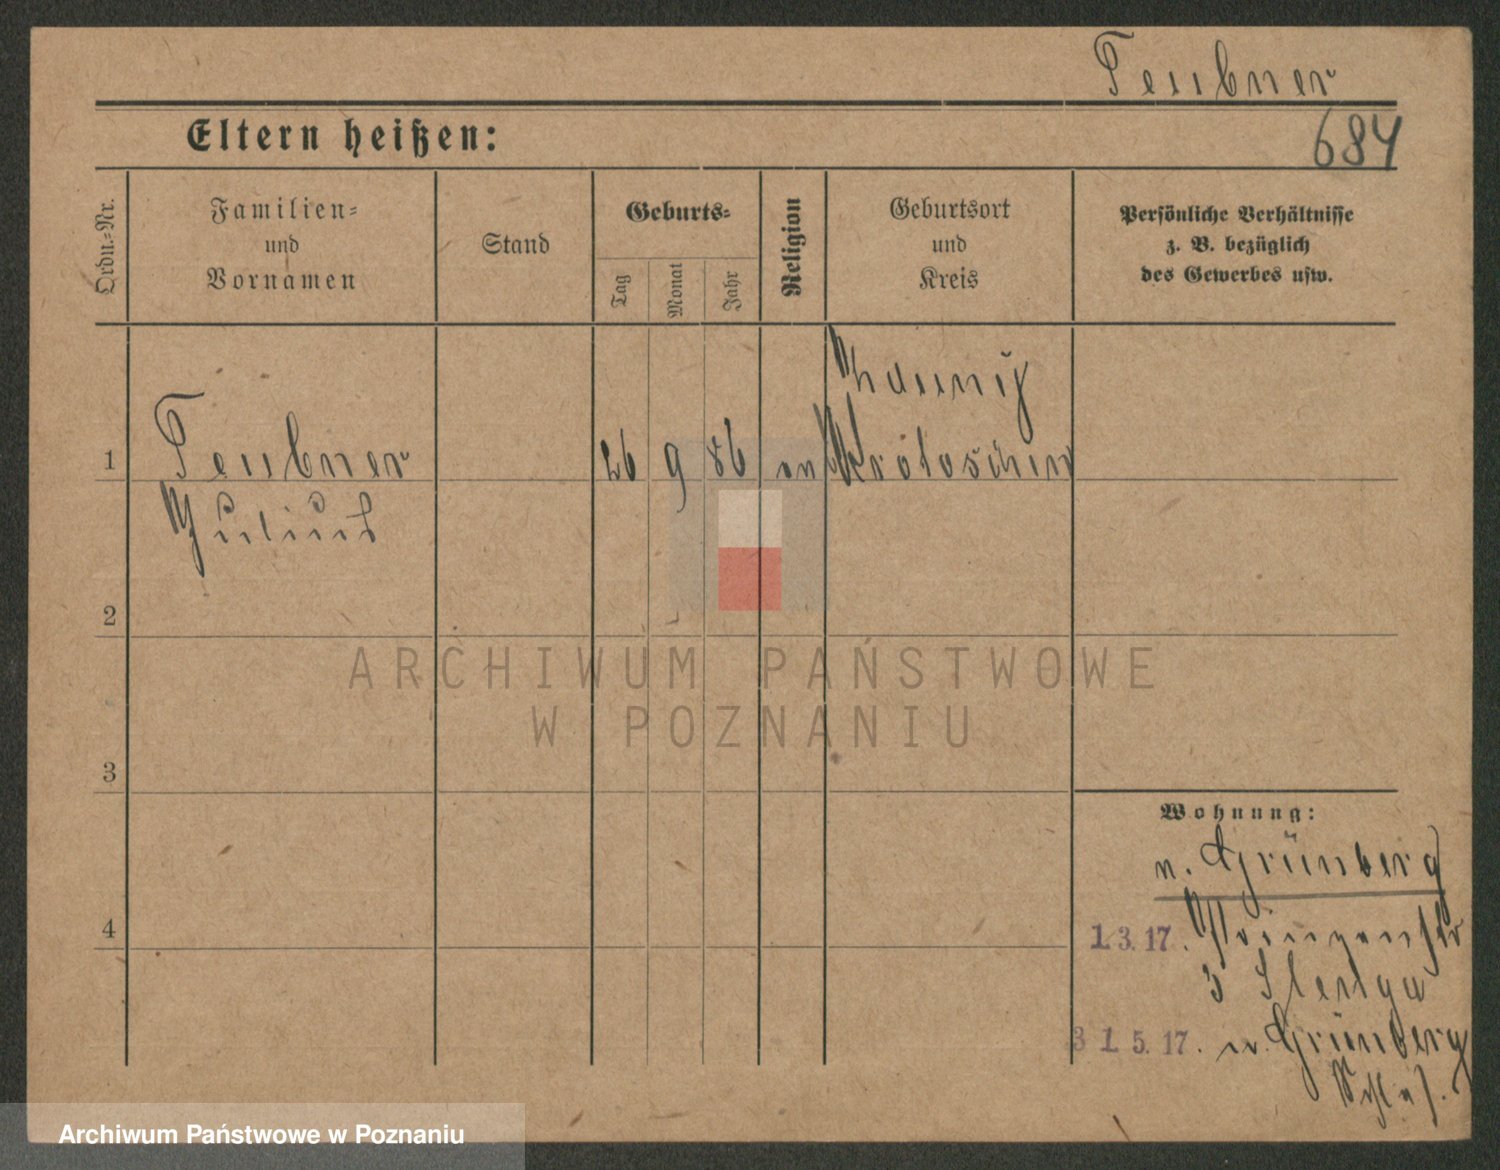 Teubner
684
Eltern heißen:
Ordn.-Nr.
Familien-
und
Vornamen
Stand
Geburts-
Tag
Monat
Jahr
Religion
Geburtsort
und
Kreis
Persönliche Verhältnisse
z. B. bezüglich
des Gewerbes usw.
1
Teubner
26 9 86
Krotoschin
Julius
2
ARCHIWUM PAŃSTWOWE
W POZNANIU
3
Wohnung:
n. Grünberg
4
1.3.17.
31.5.17. n. Grünberg
Schles.
Archiwum Państwowe w Poznaniu